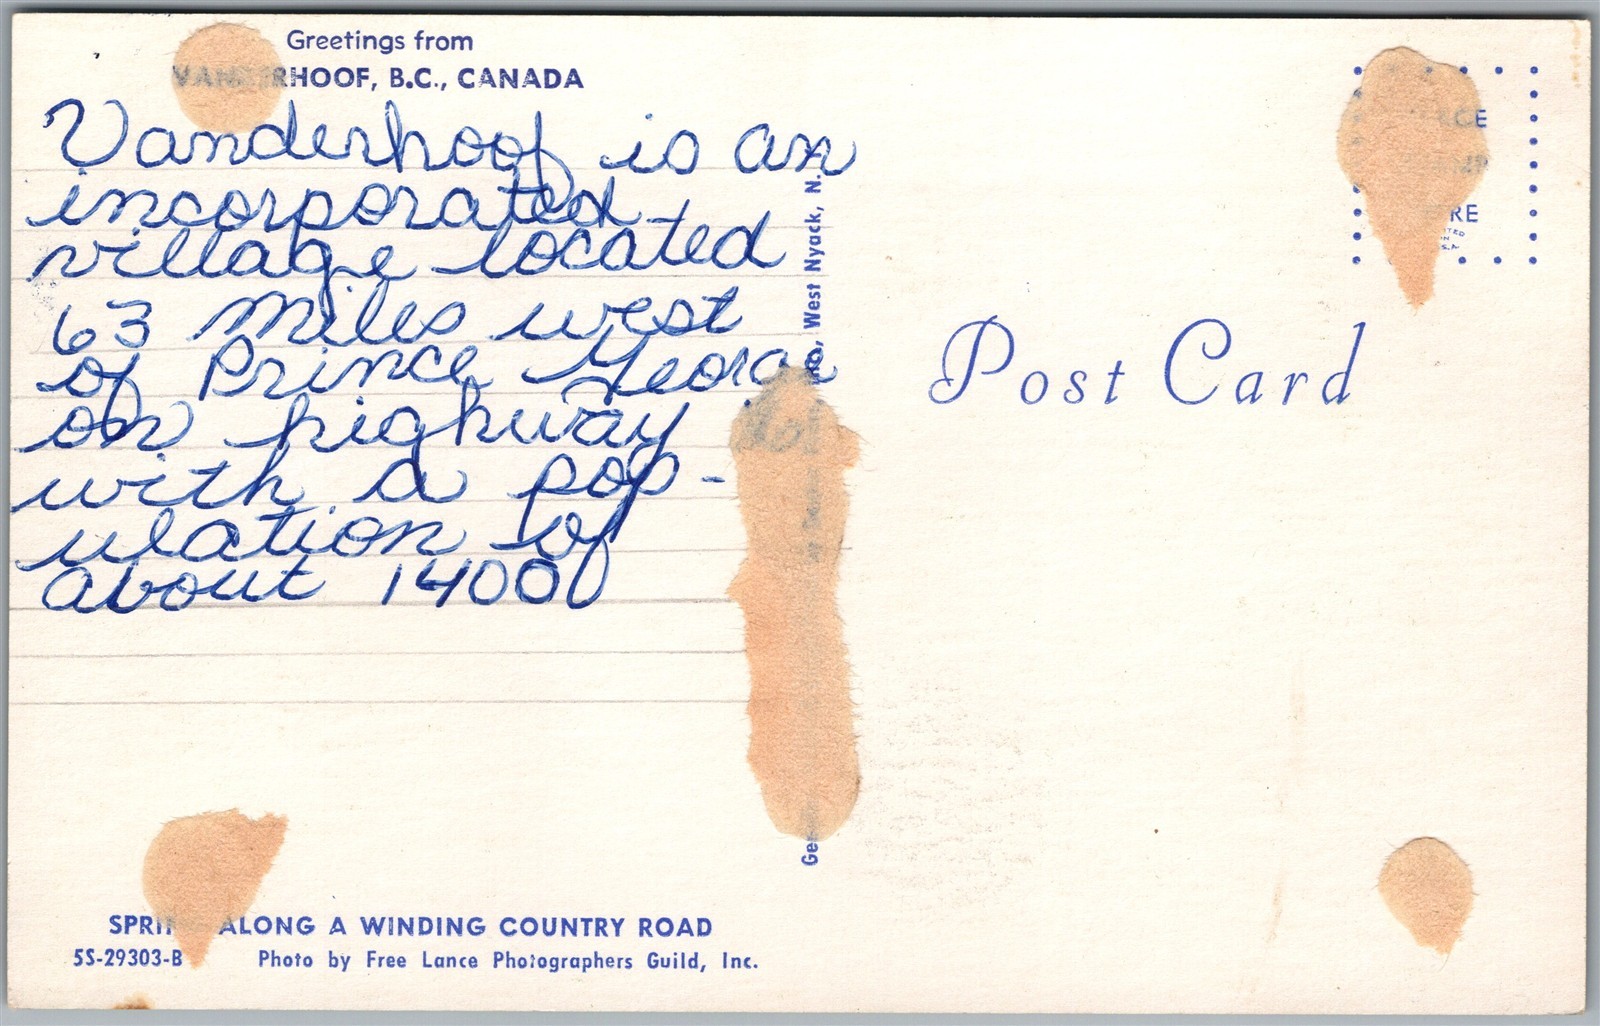 Greetings from
VANDERHOOF, B.C., CANADA
Vanderhoof is an
incorporated
village located
63 miles west
of Prince George
on highway 16
with a pop-
ulation of
about 1400
West Nyack, N.
Post Card
SPRING ALONG A WINDING COUNTRY ROAD
5S-29303-B Photo by Free Lance Photographers Guild, Inc.